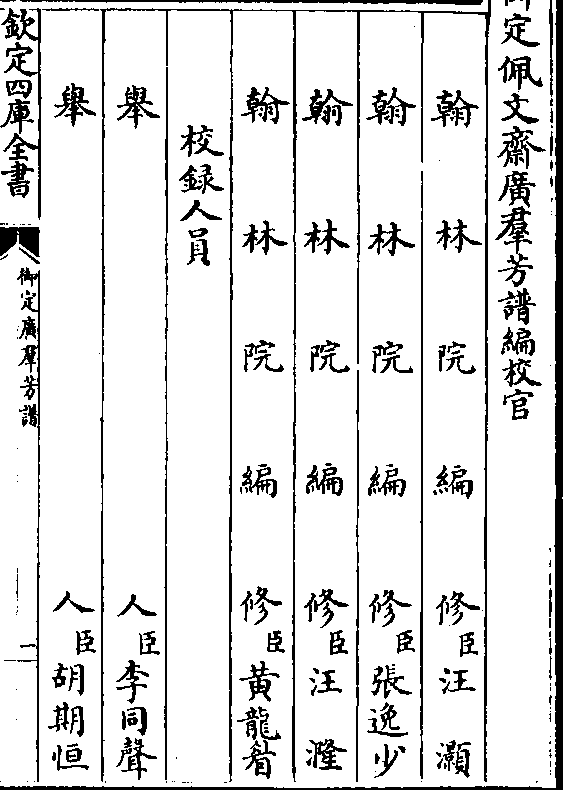 御定佩文齋廣羣芳譜編校官
翰林院編修臣汪灝
翰林院編修臣張逸少
翰林院編修臣汪漋
翰林院編修臣黃龍眉
校録人員
舉人臣李同聲
舉人臣胡期恒
欽定四庫全書
御定廣羣芳譜
一